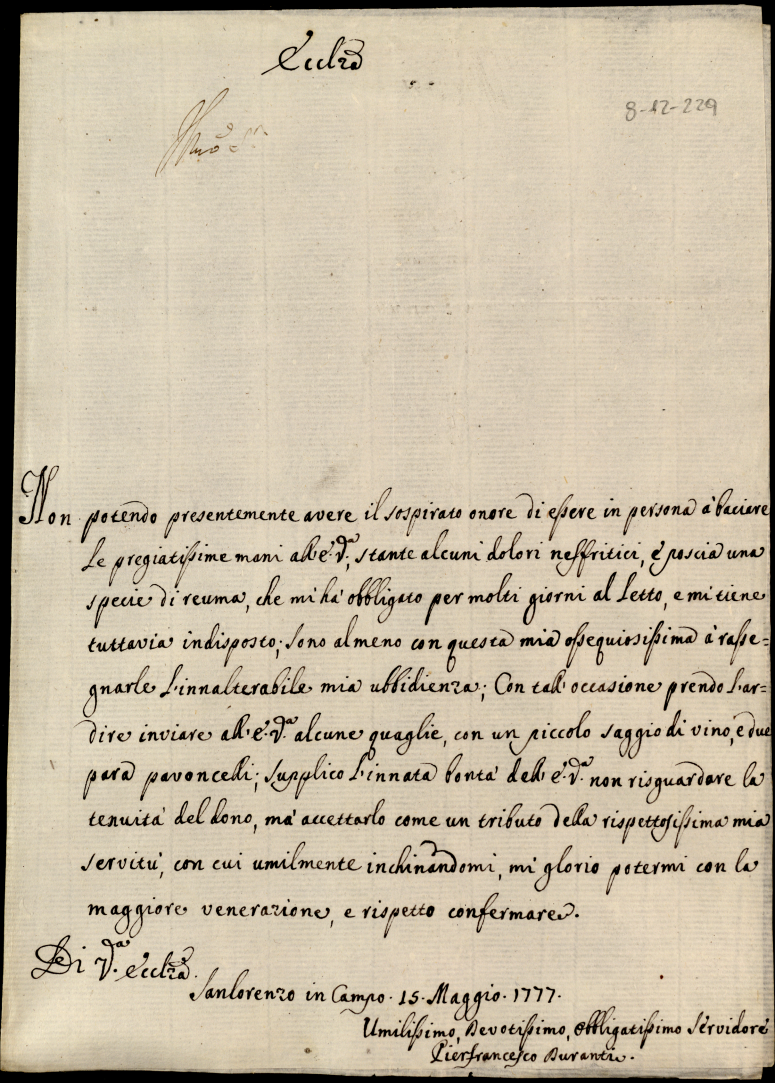 Ecclza
8-12-229
Non potendo presentemente avere il sospirato onore di essere in persona à baciare
Le pregiatissime mani all'E. Va, stante alcuni dolori neffritici, e poscia una
specie di reuma, che mi hà obbligato per molti giorni al Letto, e mi tiene
tuttavia indisposto; sono almeno con questa mia ossequiosissima à rasse=
gnarle L'innalterabile mia ubbidienza; Con tall' occasione prendo L'ar=
dire inviare all'E. Va alcune quaglie, con un piccolo saggio di vino, e due
para pavoncelli; supplico L'innata bontà dell'E. Va. non risguardare la
tenuità del dono, mà accettarlo come un tributo della rispettosissima mia
servitù, con cui umilmente inchinandomi, mi glorio potermi con la
maggiore venerazione, e rispetto confermare.
Di Va. Ecclza.
Sanlorenzo in Campo. 15. Maggio. 1777.
Umilissimo, Devotissimo, Obbligatissimo Servidore
Pierfrancesco Duranti.